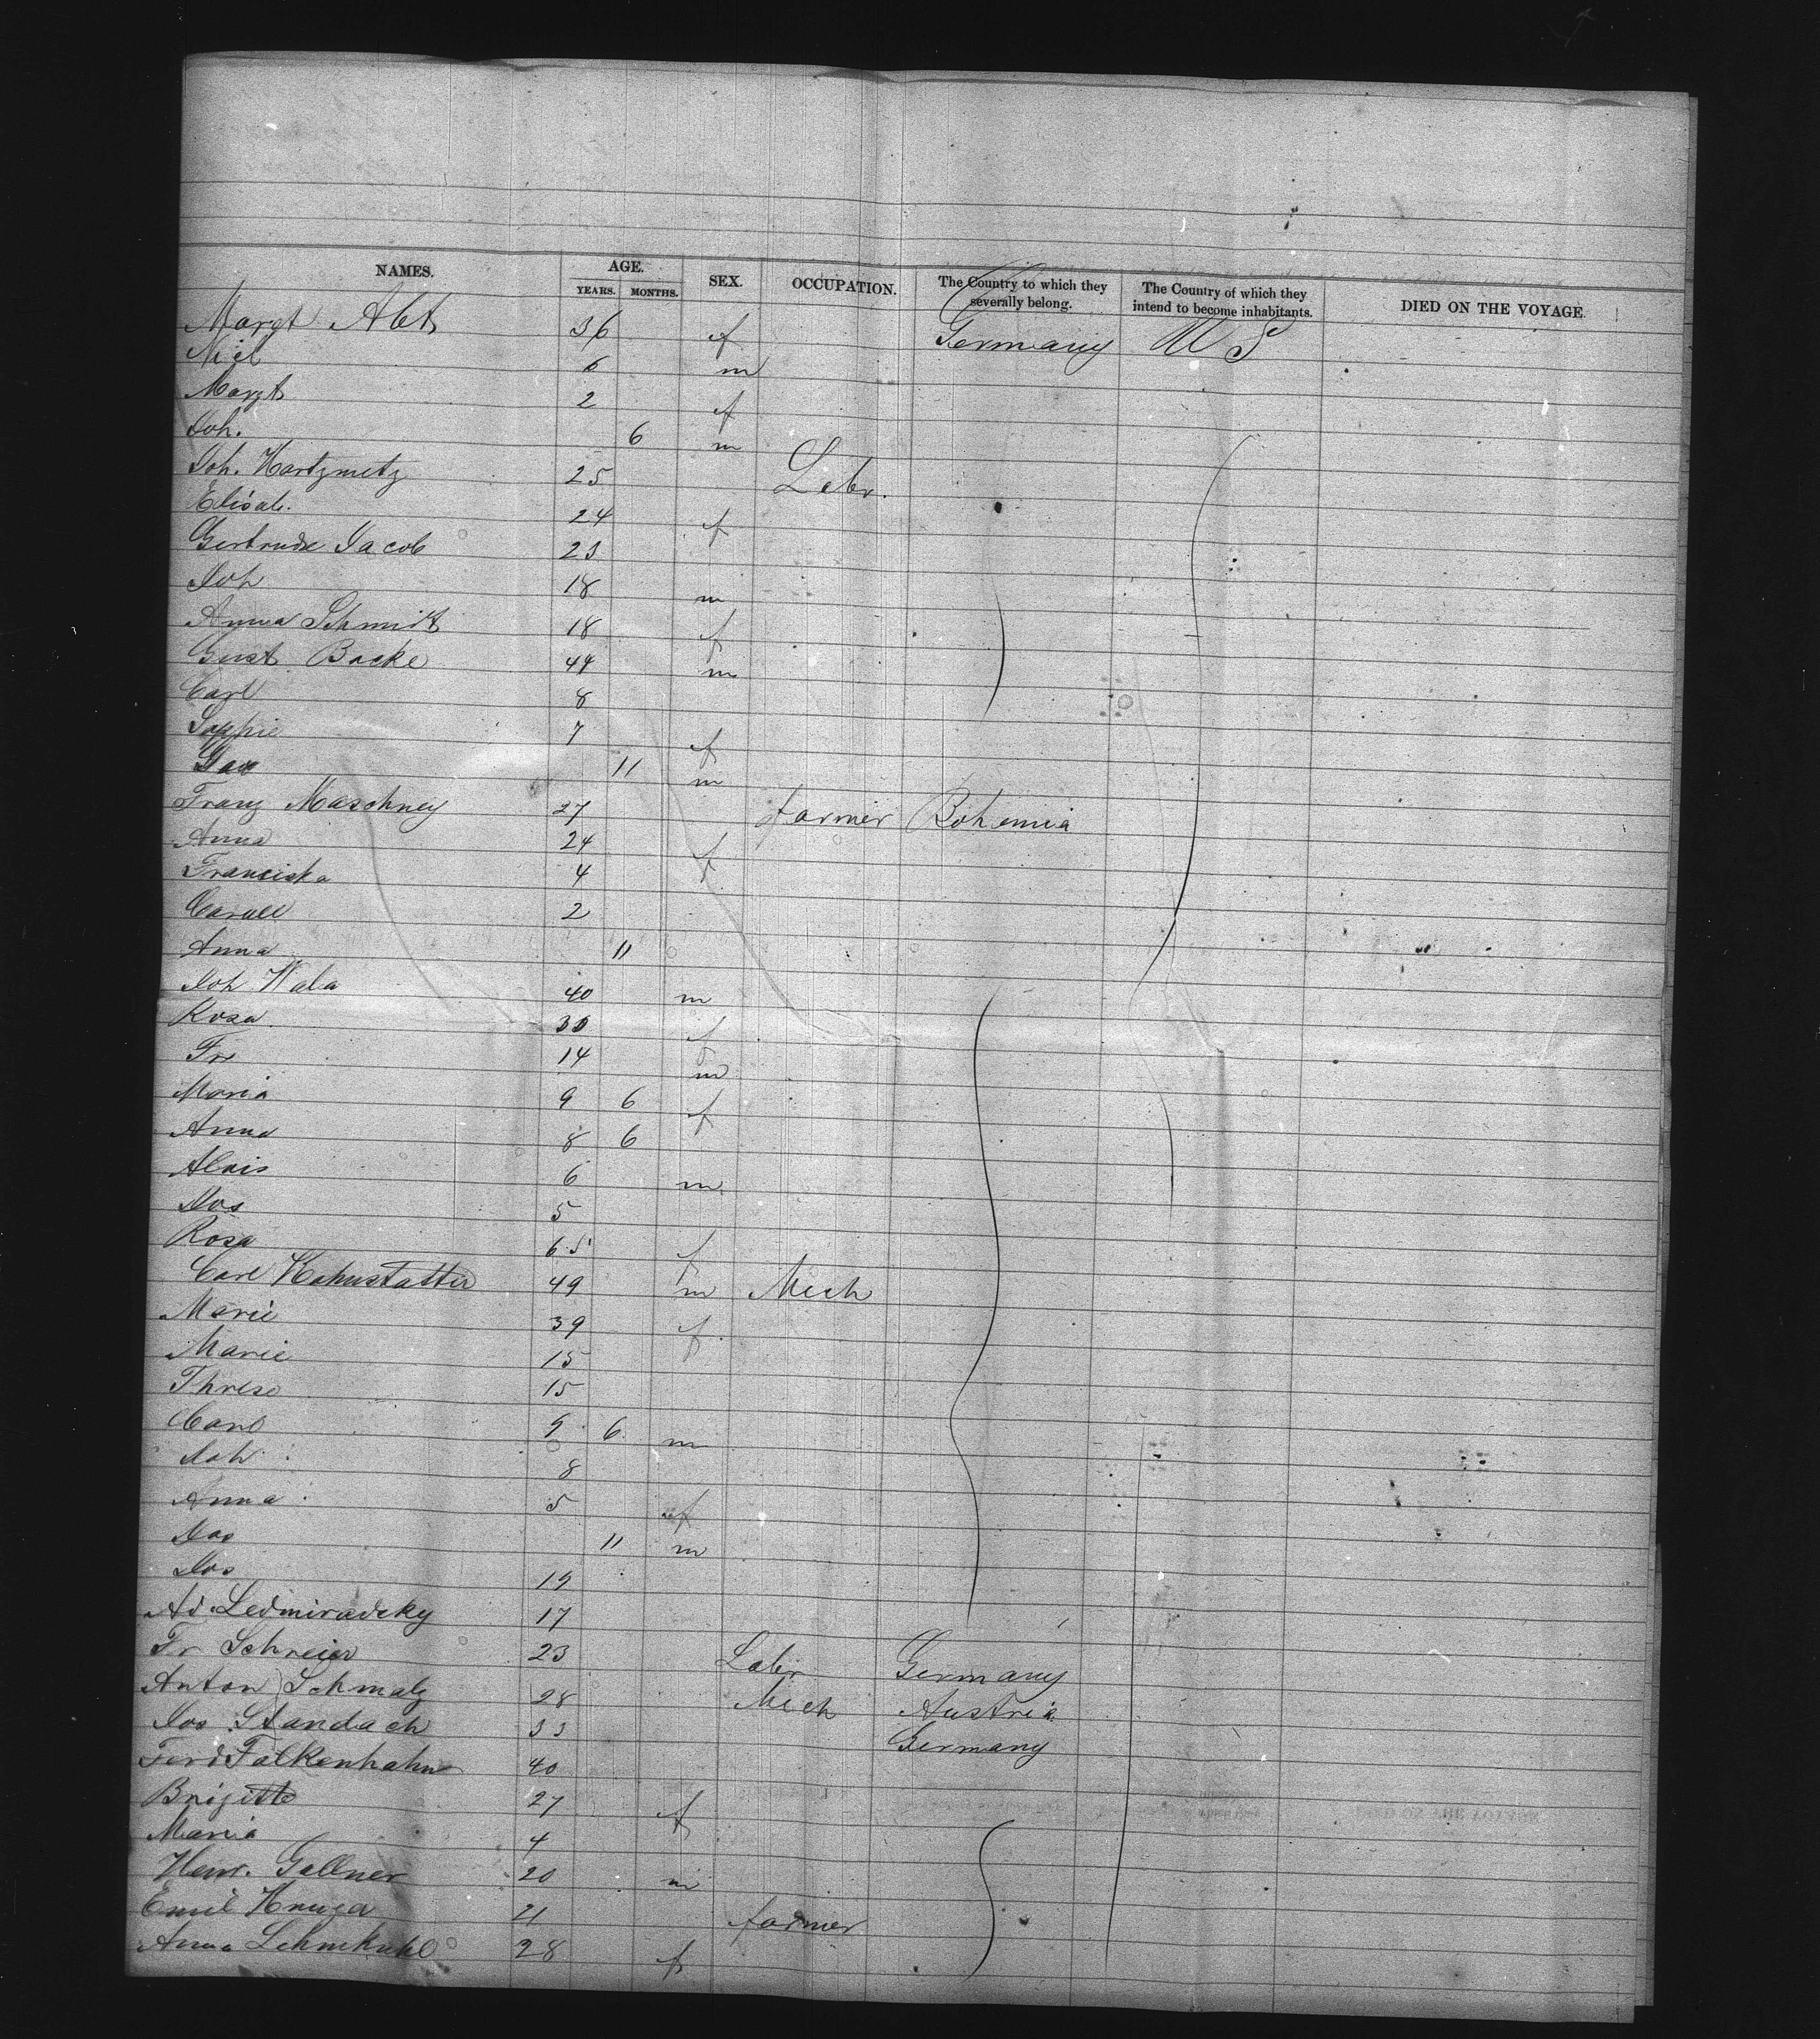 NAMES. AGE. SEX. OCCUPATION. The Country to which they severally belong. The Country of which they intend to become inhabitants. DIED ON THE VOYAGE.
YEARS. MONTHS.
Margt Abt 36 f Germany U S
Nicl 6 m
Margt 2 f
Joh. 6 m
Joh. Hartzmetz 25 Labr.
Elisab. 24 f
Gertrude Jacob 23
Joh 18 m
Anna Schmidt 18 f
Gust Backe 44 m
Carl 8
Sophie 7 f
11 m
Franz Maschney 27 farmer Bohemia
Anna 24 f
Franciska 4
2
Anna 11
Joh Wala 40 m
Rosa 30 f
Fr 14 m
Maria 9 6 f
Anna 8 6
Alois 6 m
Jos 5
Rosa 65 f
Carl Hahnstatter 49 m Mech
Marie 39 f
Marie 15
Threse 15
Carl 9 6 m
Joh 8
Anna 5 f
Jos 11 m
Jos 19
Ad. Ledmiradsky 17
Fr Schreier 23 Labr Germany
Anton Schmalz 28 Mech Austria
Jos Standach 33 Germany
Ferd Falkenhahn 40
Brigitte 27 f
Maria 4
Heinr. Gellner 20 m
Emil 21 farmer
Anna Lehmkuhl 28 f